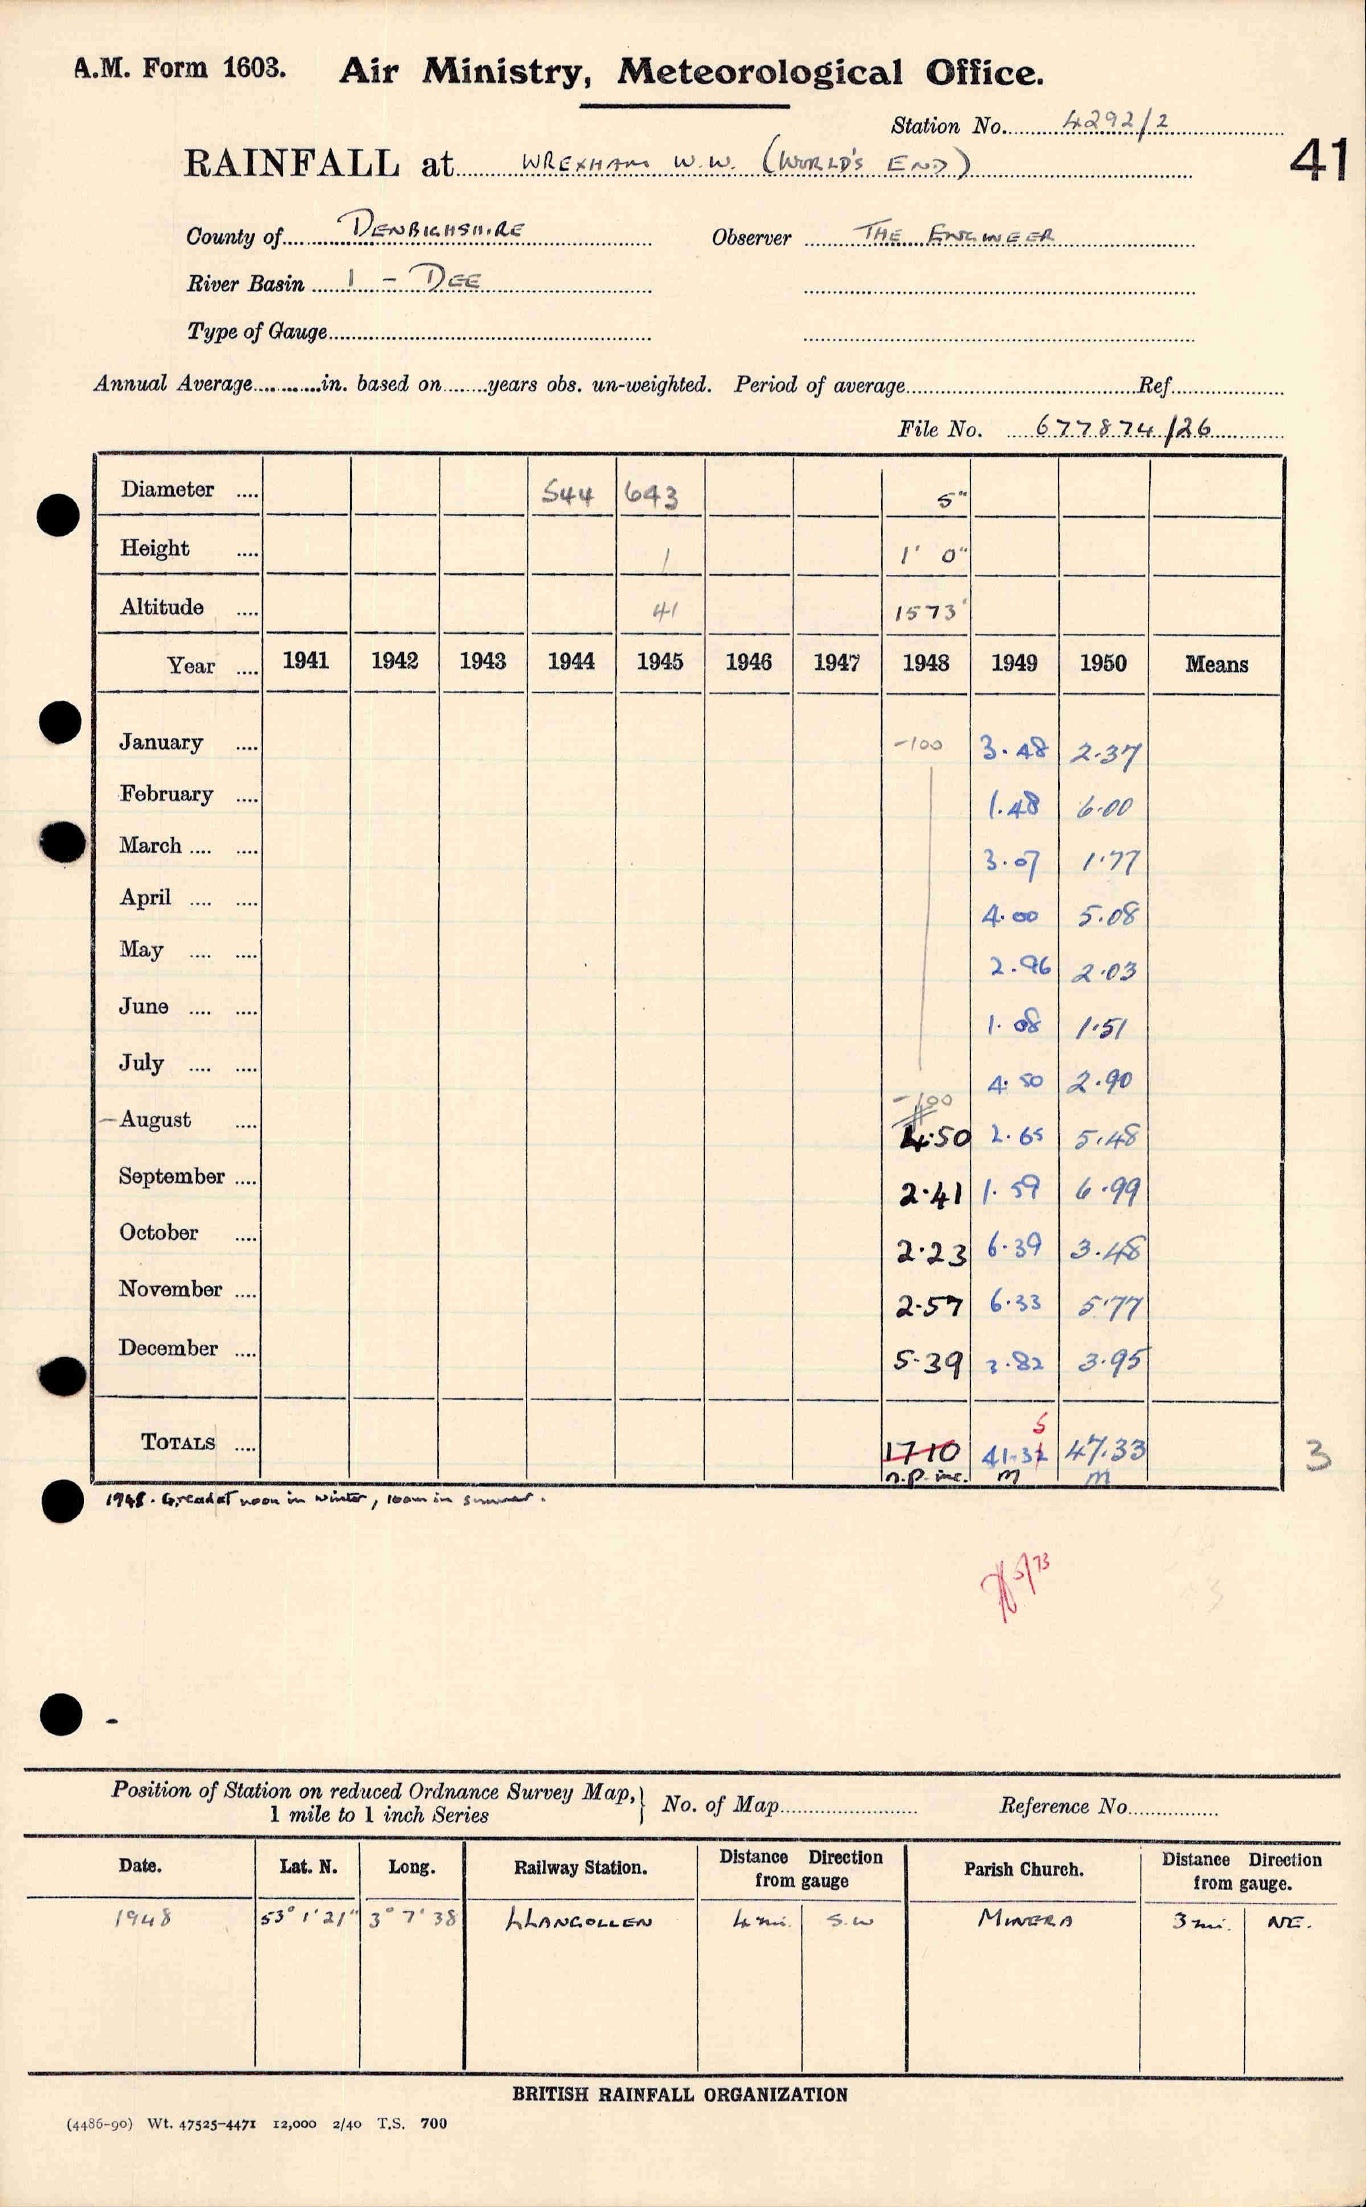 A.M. Form 1603. Air Ministry, Meteorological Office.
Station No. 4292/2
41
RAINFALL at WREXHAM W.W. (WORLD'S END)
County of DENBIGHSHIRE Observer THE ENGINEER
River Basin 1 - DEE
Type of Gauge
Annual Average in. based on years obs. un-weighted. Period of average Ref.
File No. 677874/26
Diameter 544 643 5"
Height 1 1' 0"
Altitude 41 1573'
Year 1941 1942 1943 1944 1945 1946 1947 1948 1949 1950 Means
January -100 3.48 2.37
February 1.48 6.00
March 3.07 1.77
April 4.00 5.08
May 2.96 2.03
June 1.08 1.51
July 4.50 2.90
-100
August 4.50 2.65 5.48
September 2.41 1.59 6.99
October 2.23 6.39 3.48
November 2.57 6.33 5.77
December 5.39 3.82 3.95
5
TOTALS 1710 41.32 47.33 3
n.p. inc. m m
1948. G, read at noon in winter, 10am in summer.
5/73
Position of Station on reduced Ordnance Survey Map, 1 mile to 1 inch Series } No. of Map Reference No.
Date. Lat. N. Long. Railway Station. Distance Direction from gauge Parish Church. Distance Direction from gauge.
1948 53° 1' 21" 3° 7' 38 LLANGOLLEN 4 mi. S.W MINERA 3 mi. NE.
BRITISH RAINFALL ORGANIZATION
(4486-90) Wt. 47525-4471 12,000 2/40 T.S. 700